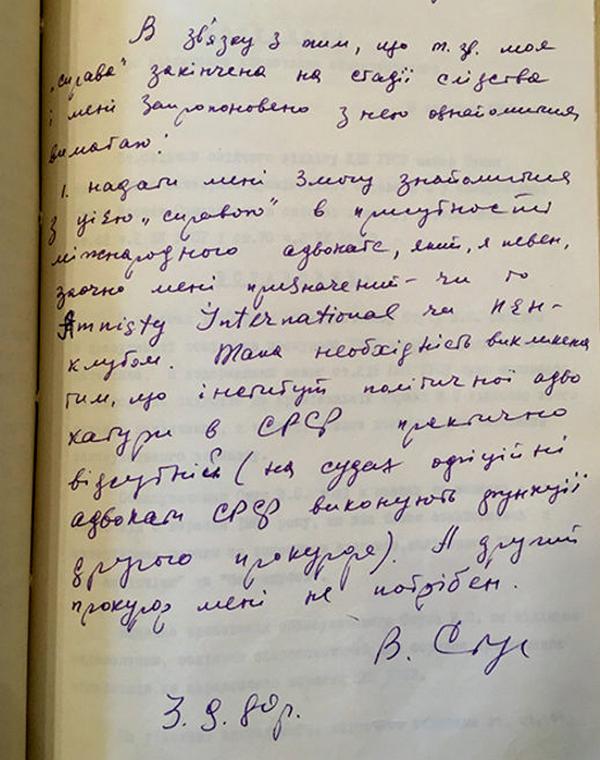 В зв'язку з тим, що т. зв. моя
„справа" закінчена на стадії слідства
і мені запропоновено з нею ознайомитися,
вимагаю:
1. надати мені змогу знайомитися
з цією „справою" в присутності
міжнародного адвоката, який, я певен,
заочно мені призначений – чи то
Amnisty International чи ПЕН-
клубом. Така необхідність викликана
тим, що інститут політичної адво
катури в СРСР практично
відсутній (на судах офіційні
адвокати СРСР виконують функції
другого прокурора). А другий
прокурор мені не потрібен.
В. Стус
3.9.80р.